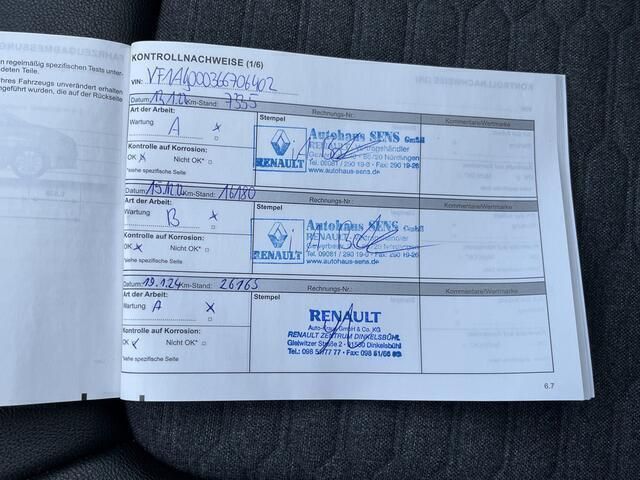 FAHRZEUGABMESSUNG
n regelmäßig spezifischen Tests unter-
deten Teile.
hres Fahrzeugs unverändert erhalten
geführt wurden, die auf der Rückseite
KONTROLLNACHWEISE (1/6)
VIN:
Datum: km-Stand: 7355 Rechnungs-Nr.: Kommentare/Wertmarke
Art der Arbeit: Stempel
Wartung A x
Kontrolle auf Korrosion:
OK x Nicht OK* □
*siehe spezifische Seite
Autohaus SENS GmbH
RENAULT Vertragshändler
86720 Nördlingen
Tel. 09081 / 290 19-0 · Fax: 290 19-26
www.autohaus-sens.de
RENAULT
Datum: km-Stand: 16180 Rechnungs-Nr.: Kommentare/Wertmarke
Art der Arbeit: Stempel
Wartung B x
Kontrolle auf Korrosion:
OK x Nicht OK* □
*siehe spezifische Seite
Autohaus SENS GmbH
RENAULT
Tel. 09081 / 290 19-0 · Fax: 290 19-26
www.autohaus-sens.de
RENAULT
Datum: 19.1.24 km-Stand: 26165 Rechnungs-Nr.: Kommentare/Wertmarke
Art der Arbeit: Stempel
Wartung A x
Kontrolle auf Korrosion:
OK Nicht OK* □
*siehe spezifische Seite
RENAULT
GmbH & Co. KG
RENAULT ZENTRUM DINKELSBÜHL
Gleiwitzer Straße 2 · 91550 Dinkelsbühl
6.7